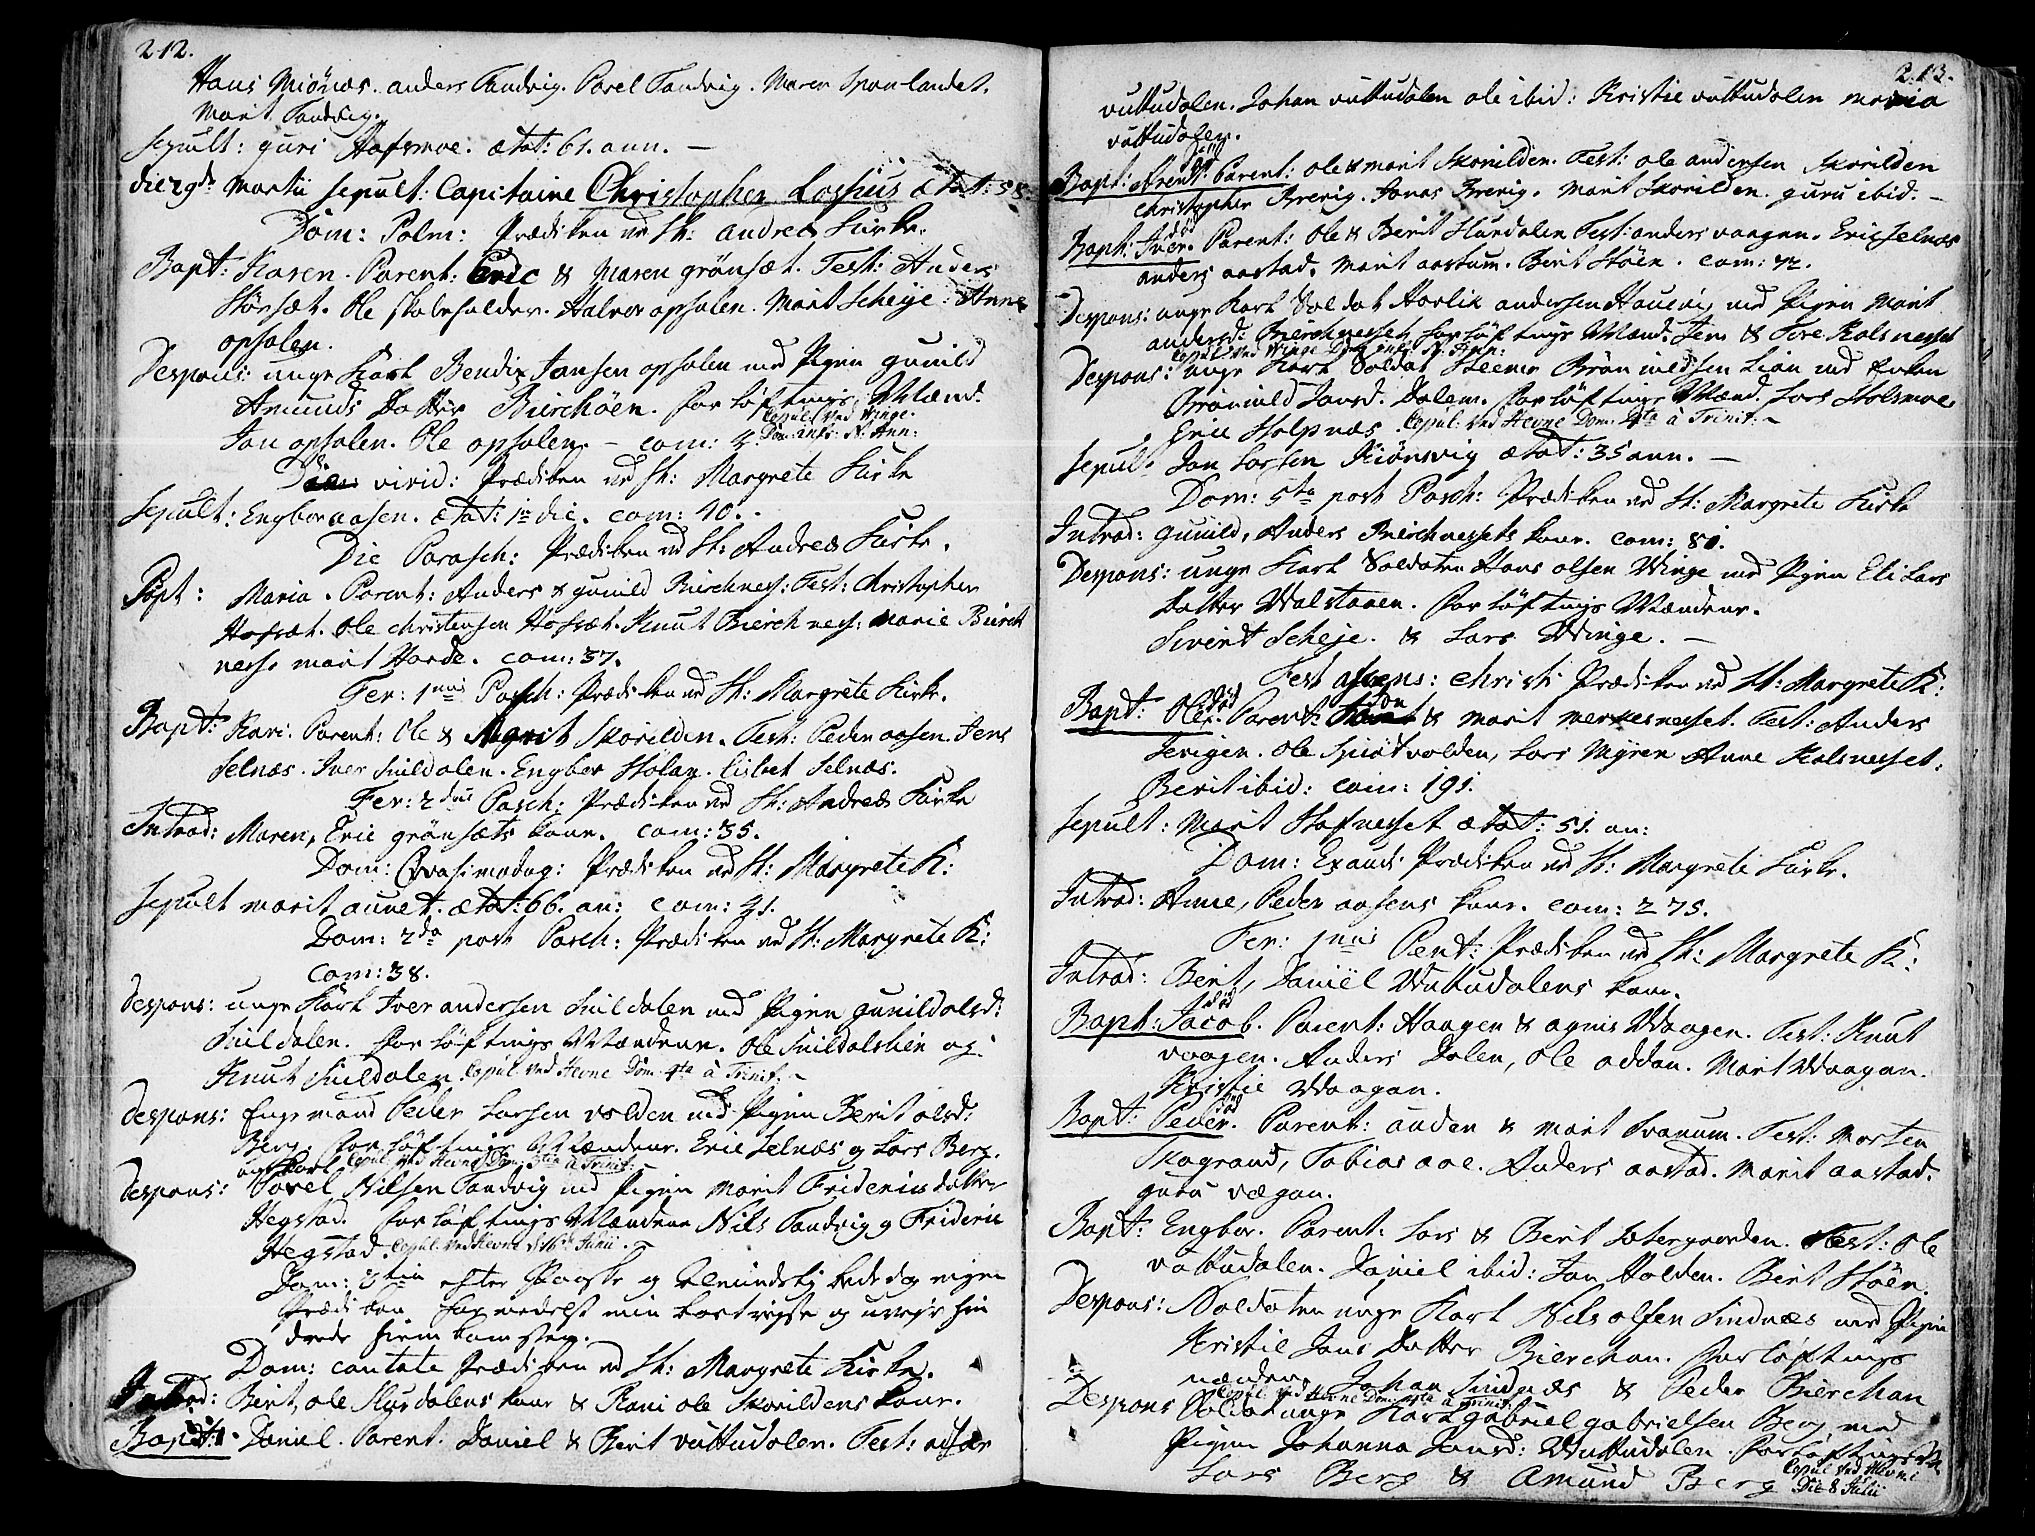 212.
Hans Miönes. anders Tandvig. Parel Tandvig. Maren Sponlandet.
Marit Tandvig.
Sepult: guri Hafsmoe. ætat: 61. ann. —
die 29de Martii sepult: Capitaine Christopher Lossius ætat: 58.
Dom: Palm: Prædiken ved St: Andreæ Kirke.
Bapt: Karen. Parent: Eric & Maren grönset. Test: Anders
Störset. Ole Halvor opsalen. Marit Scheje: Anne
opsalen.
Despons: unge Karl Bendix Jansen opsalen med Pigen gunild
Amunds Datter Bierchöen. forlöftnings Mænd:
Jan opsalen. Ole opsalen. — com: 4 Copul: ved Winge.
Dom: infr: N: Ann:
Die virid: Prædiken ved St: Margrete Kirke
Sepult: Engbor aasen. ætat: 1 die. com: 40.
Die Parasch: Prædiken ved St: Andreæ Kirke.
Bapt: Maria. Parent: Anders & gunild Bierchness: Test: Christopher
Hofset. Ole Christensen Hofset. Knut Bierchness: Marie Bierch
ness. marit Harde. com: 37.
Fer: 1mis Pasch: Prædiken ved St: Margrete Kirke.
Bapt: Kari. Parent: Ole & Skorilden. Test: Peder aasen. Jens
Selnæs. Iver Snildalen. Engbor Stölan. Lisbet Selnæs.
Fer: 2dus Pasch: Prædiken ved St: Andreæ Kirke
Introd: Maren, Eric grönsets kone. com: 35.
Dom: Qvasimodog: Prædiken ved St: Margrete K:
Sepult marit aunet. ætat: 66. an: com: 41.
Dom: 2da post Pasch: Prædiken ved St: Margrete K:
Com: 38.
Despons: unge Karl Iver andersen Snildalen med Pigen gunild olsd:
Snildalen. forlöftnings Mændene. Ole Snildalslien og
Knut Snildalen. Copul ved Hevne Dom: 4ta à Trinit: —
Despons: Enge mand Peder Larsen volden med Pigen Berit olsd:
Berg. forlöftnings Mændene. Eric Selnæs og Lars Berg.
ung Karl Copul: ved Hevne Dom: 3tia à Trinit:
Despons: Parel Nilsen Tandvig med Pigen Marit Friderics datter
Hegstad. forlöftnings Mændene Nils Tandvig og Frideric
Hegstad. Copul: ved Hevne d: 16de Junii. —
Dom: 3tia efter Paaske og Almindelig bededag ingen
Prædiken formedelst min bortreyse og uvejr hin
drede hiemkomsten.
Dom: Cantate Prædiken ved St: Margrete Kirke.
Introd: Berit, ole Slurdalens kone & Kari ole Skorildens kone.
Bapt: Daniel. Parent: Daniel & Berit vuttudalen. Test:
213.
vuttudalen. Johan vuttudalen ole ibid: Kristie vuttudalen maria
vuttudalen.
Bapt: Arent. Parent: ole & marit Skorilden. Test: ole andersen Skorilden
Christopher Brevig. Jonas Brevig. Marit Skorilden. guru ibid. —
död
Bapt: Iver. Parent: Ole & Berit Slurdalen Test: anders vaagen. Eric Selnæs
anders aastad. Marit aastum. Berit Stöen. com: 72.
Despons: unge Karl Soldat andersen med Pigen Marit
andersd: Bierchnesset. forlöftnings Mænd. Jens & Tore Kalsnesset
Copul: ved Winge Dom: infr: N: Ann:
Despons: unge Karl Soldat Brönnildsen Lian med Enken
Brönnild Jansd. Dalem. forlöftnings Mænd. Lars Holsmoe.
Eric Stolpnæs. Copul: ved Hevne Dom: 4ta à Trinit: —
Sepul. Jan Larsen Kiönsvig ætat: 35 ann. —
Dom: 5ta post Pasch: Prædiken ved St: Margrete Kirke
Introd: gunild, Anders Bierchnessets kone. com: 81.
Despons: unge Karl Soldaten Hans olsen Winge med Pigen Eli Lars
datter Walstanen. forlöftnings Mændene.
Sivert Scheje. & Lars Winge. —
Fest ascens: Christi Prædiken ved St: Margrete K:
död
Bapt: Ole. Parent: & marit merkesnesset. Test: Anders
Terigen. Ole Spiötvolden, Lars Myren Anne Kalsnesset.
Berit ibid: com: 191.
Sepult: Marit Stafnesset ætat: 51. an:
Dom: Exaudi Prædiken ved St: Margrete Kirke.
Introd: Anne, Peder aasens kone. com: 275.
Fer: 1mis Pent: Prædiken ved St: Margrete K:
Introd: Berit, Daniel Wuttudalens kone.
död
Bapt: Jacob. Parent: Haagen & agnis Waagen. Test: Knut
vaagen. Anders Dalen, Ole oddan. Marit Waagan.
Kristie Waagan.
död
Bapt: Peder. Parent: auden & marit Svanum. Test: Morten
Skogrand, Tobias aae. Anders aastad. Marit aastad.
guru vægan.
Bapt: Engbor. Parent: Lars & Berit Sætergaarden. Test: Ole
vuttudalen. Daniel ibid: Jan Halden. Berit Stöen.
Despons: Soldaten unge Karl Nils olsen Sindnæs med Pigen
Kristie Jans Datter Bierchan. forlöftnings
mændene Johan Sindnæs & Peder Bierchan
Copul ved Hevne Dom: 4ta à Trinit:
Despons Soldat unge Karl gabriel gabrielsen Berg med
Pigen Johanna Jansd: Wuttudalen. forlöftnings M.
Lars Berg & Amund Berg Copul ved Hevne
Die 8 Julii